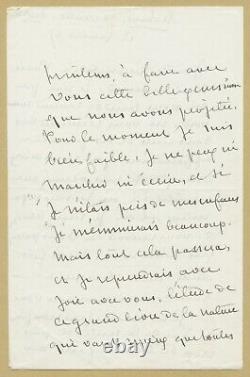 printems, à faire avec
vous cette belle
que nous avons projetée.
Pour le moment je suis
bien faible, je ne peux ni
marcher ni écrire, et si
je n'étais près de mes enfans
je m'ennuirais beaucoup.
Mais tout cela passera,
et je reprendrais avec
joie avec vous, l'étude de
ce grand livre de la nature
qui vaut mieux que toutes